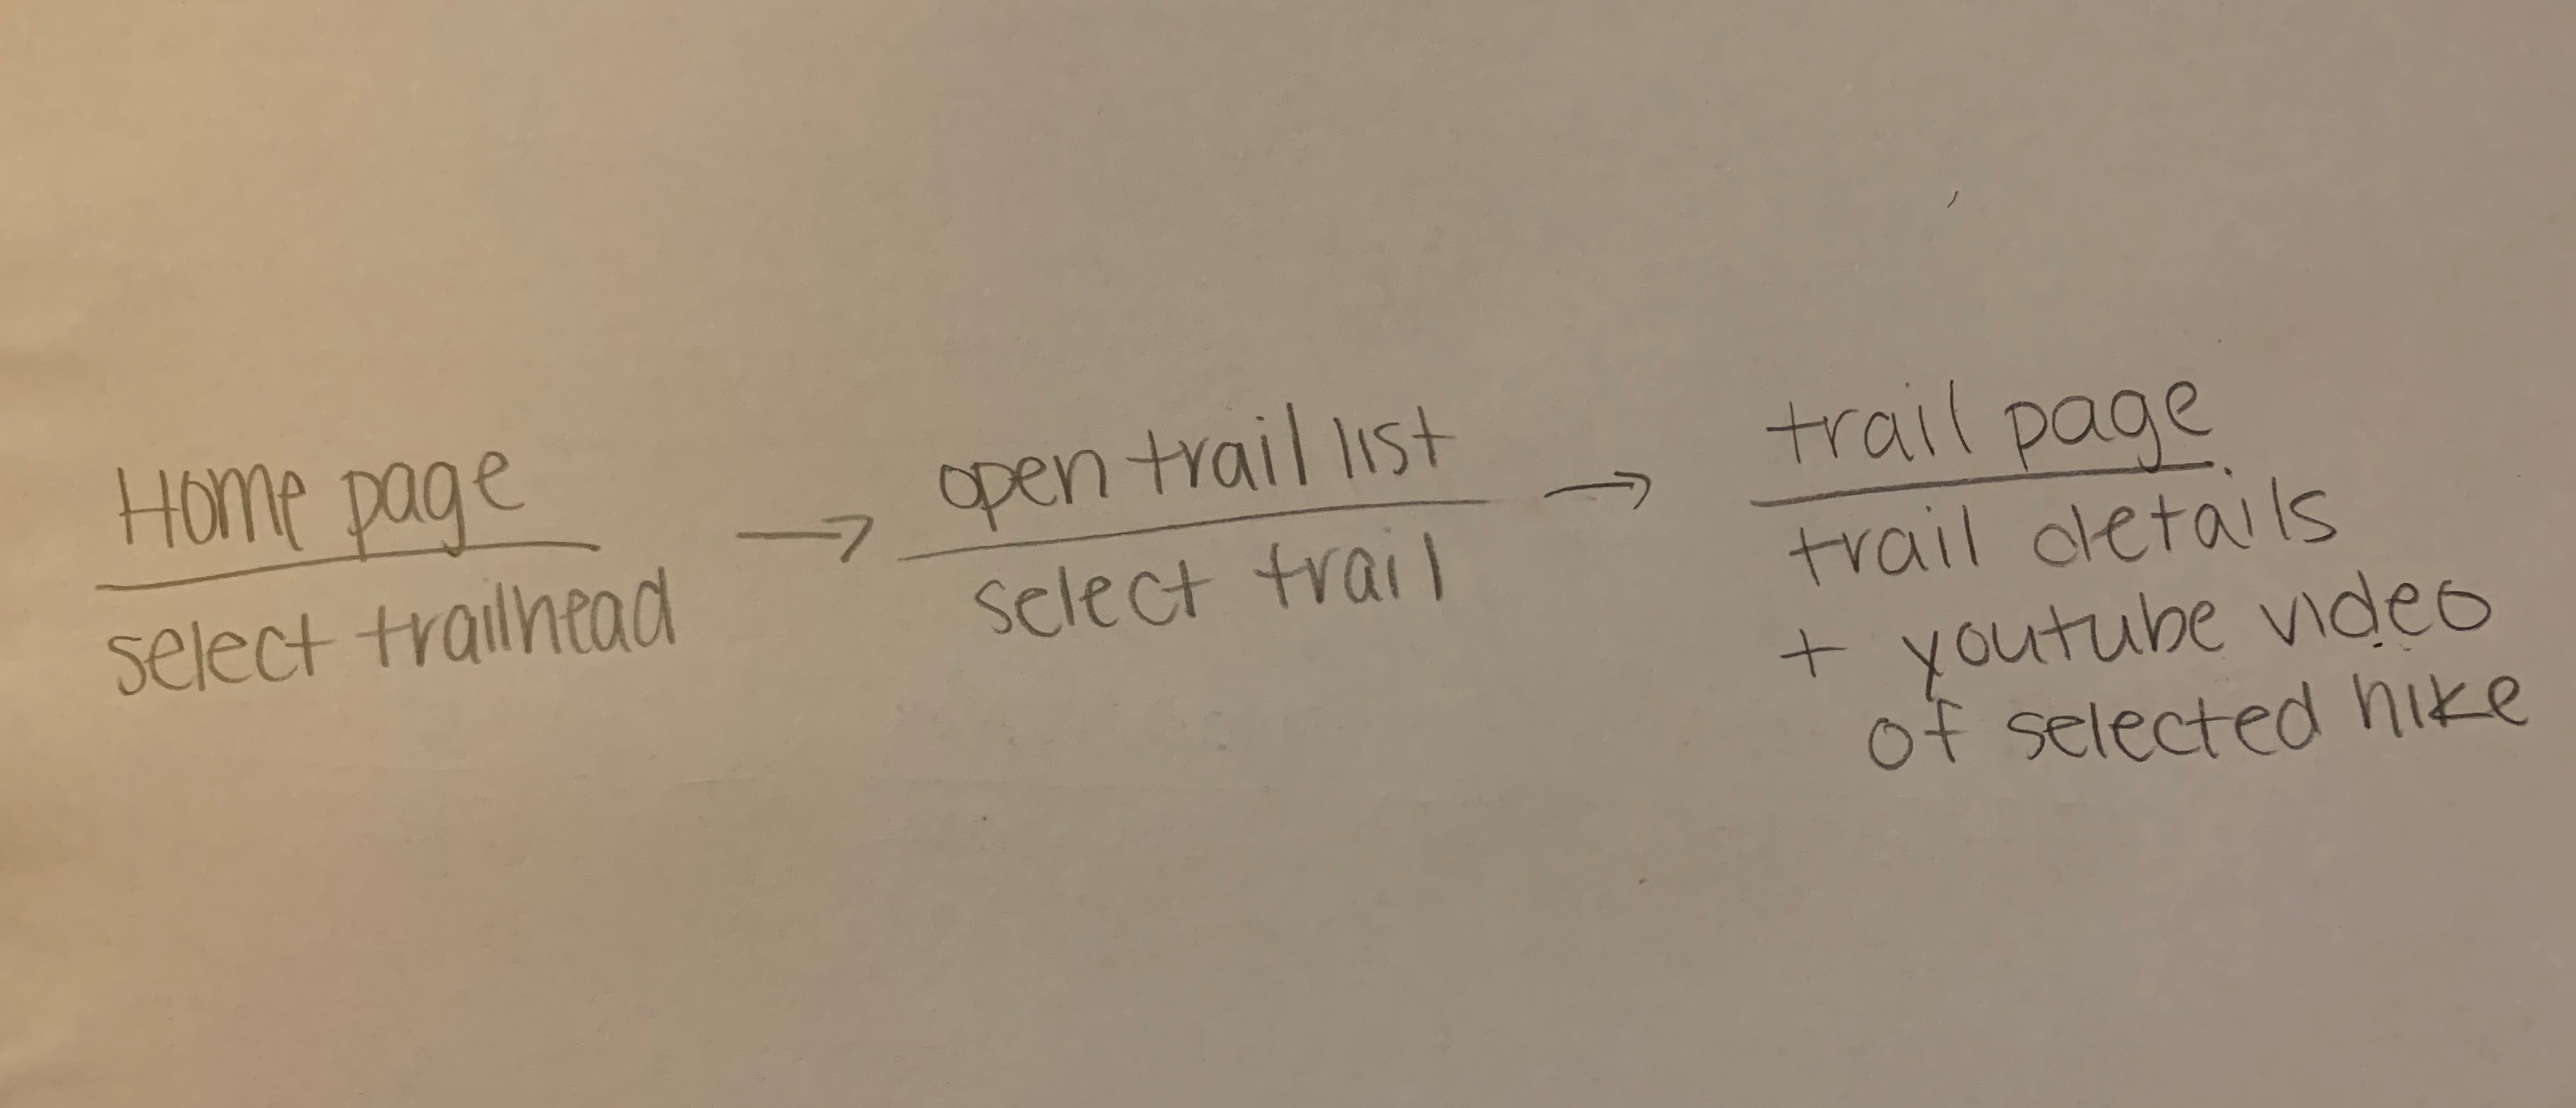 Home page
select trailhead
→
open trail list
select trail
→
trail page
trail details
+ youtube video
of selected hike